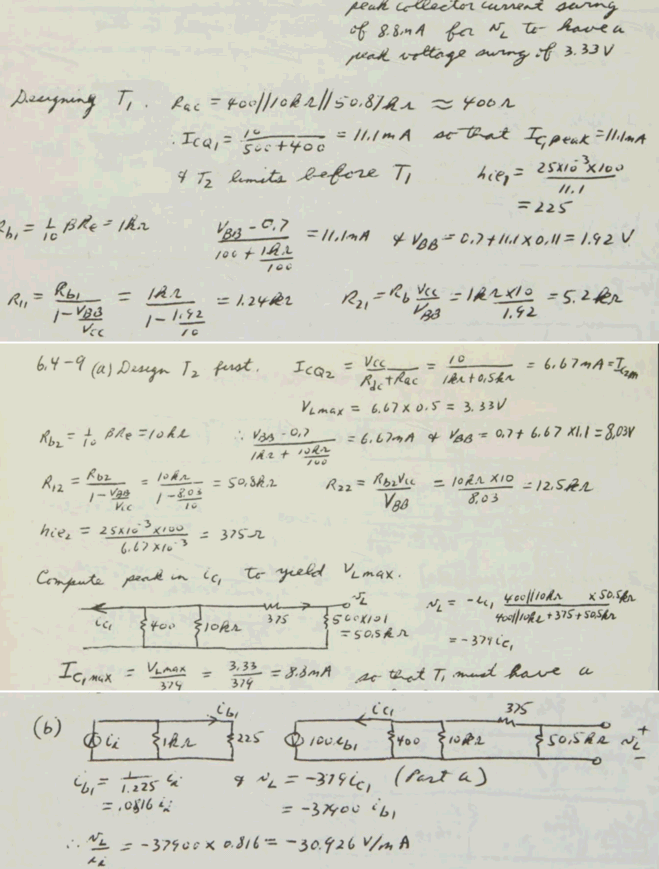 peak collector current swing
of 8.8mA for vL to have a
peak voltage swing of 3.33V
Designing T1. Rac = 400//10kΩ//50.87kΩ ≈ 400Ω
∴ ICQ1 = 10/(500+400) = 11.1mA so that IC1peak = 11.1mA
& T2 limits before T1 hie1 = 25x10^-3x100/11.1
= 225
Rb1 = 1/10 βRe = 1kΩ (VBB-0.7)/(100+1kΩ/100) = 11.1mA & VBB = 0.7+11.1x0.11 = 1.92V
R11 = Rb1/(1-VBB/VCC) = 1kΩ/(1-1.92/10) = 1.24kΩ R21 = Rb VCC/VBB = 1kΩx10/1.92 = 5.2kΩ
6.4-9 (a) Design T2 first. ICQ2 = VCC/(Rdc+Rac) = 10/(1kΩ+0.5kΩ) = 6.67mA = IC2m
VLmax = 6.67x0.5 = 3.33V
Rb2 = 1/10 βRe = 10kΩ ∴ (VBB-0.7)/(1kΩ+10kΩ/100) = 6.67mA & VBB = 0.7+6.67x1.1 = 8.03V
R12 = Rb2/(1-VBB/VCC) = 10kΩ/(1-8.03/10) = 50.8kΩ R22 = Rb2VCC/VBB = 10kΩx10/8.03 = 12.5kΩ
hie2 = 25x10^-3x100/6.67x10^-3 = 375Ω
Compute peak in iC1 to yield VLmax.
iC1 400 10kΩ 375 vL 500x101
= 50.5kΩ
vL = -iC1 400//10kΩ/(400//10kΩ+375+50.5kΩ) x50.5kΩ
= -379iC1
IC1max = VLmax/379 = 3.33/379 = 8.8mA so that T1 must have a
(b) ii 1kΩ ib1 225 100ib1 iC1 400 10kΩ 375 50.5kΩ vL + -
ib1 = 1/1.225 ii & vL = -379iC1 (Part a)
= .0816ii = -37900ib1
∴ vL/ii = -37900x0.816 = -30.926 V/mA